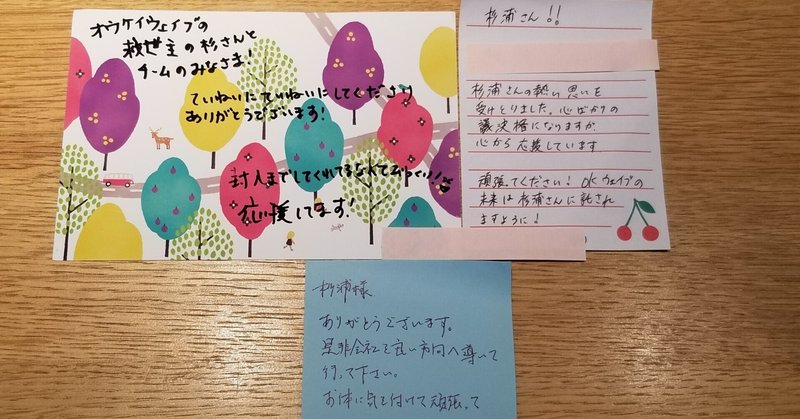 オウケイウェイブの
救世主の杉さんと
チームのみなさま!
ていねいにていねいにしてくださり
ありがとうございます!
封入までしてくれてるなんてびっくり!
応援してます!
杉浦さん!!
杉浦さんの熱い思いを
受けとりました。心ばかりの
議決権になりますが
心から応援しています
頑張ってください! OKウェイブの
未来は杉浦さんに託され
ますように!
杉浦様
ありがとうございます。
是非会社を良い方向へ導いて
行って下さい。
お体に気を付けて頑張って